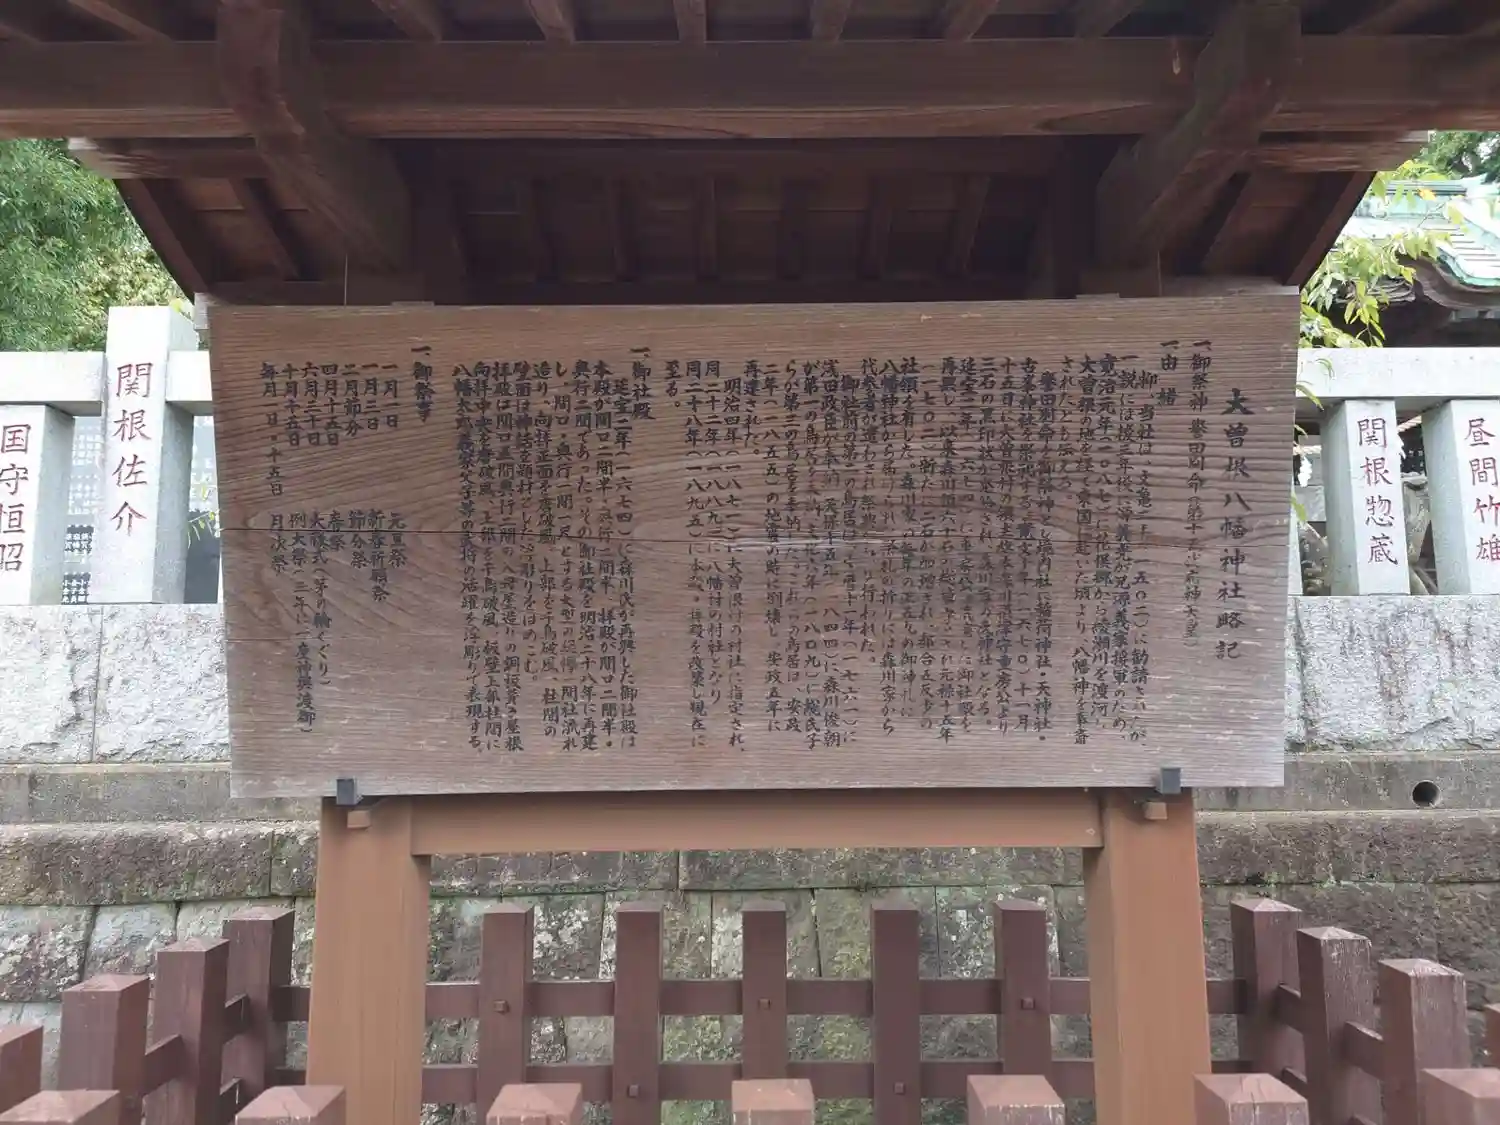 大曽根八幡神社略記
一、御祭神 誉田別命(第十五代応神天皇)
一、由緒
抑、当社は、文亀二年(一五〇二)に勧請されたが、
一説には後三年役に源義光が兄源義家援軍のため、
寛治元年(一〇八七)に
大曽根の地を経て東国に赴いた頃より、八幡神を奉斎
されたとも伝える。
誉田別命を御祭神とし境内社に稲荷神社・天神社・
古峯神社を祭祀する。寛文十年(一六七〇)十一月
十五日に大曽根村の領主
三石の黒印状が発給され、森川家の氏神社となる。
延宝二年(一六七四)に
再興し、以来森川領六ヶ村の総鎮守とされ元禄十五年
(一七〇二)新たに二石が加増され、都合五反歩の
社領を有した。森川家の毎年の正五九の御神札は
八幡神社から届けられ、祭礼の折りには森川家から
代参者が遣わされ祭典が執り行われた。
御社前の第二の鳥居は、宝暦十一年(一七六一)に
浅田政臣が奉納、天保十五年(一八四四)に森川俊朝
が第一の鳥居を奉納、文化六年(一八〇九)に総氏子
らが第三の鳥居を奉納した。これらの鳥居は、安政
二年(一八五五)の地震の時に倒壊し、安政五年に
再建された。
明治四年(一八七一)に大曽根村の村社に指定され、
同二十二年(一八八九)に八幡村の村社となり
同二十八年(一八九五)に本殿。拝殿を改築し現在に
至る。
一、御社殿
延宝二年(一六七四)に森川氏が再興した御社殿は
本殿が間口二間半・奥行二間半、拝殿が間口二間半・
奥行二間であった。その御社殿を明治二十八年に再建
し、間口・奥行一間一尺とする大型の一間社流れ
造り、向拝正面を唐破風、上部を千鳥破風、柱間の
壁面は神話を題材とした彫りをはめこむ。
拝殿は間口五間奥行二間の入母屋造りの銅板葺き屋根
向拝中央を唐破風、上部を千鳥破風、板壁上部柱間に
八幡太郎義家父子等の武将の活躍を浮彫りで表現する。
一、御祭等
一月一日 元旦祭
一月二日 新春祈願祭
二月節分 節分祭
四月十五日 春祭
六月三十日 大祓式(茅の輪くぐり)
十月十五日 例大祭(三年に一度神輿渡御)
毎月一日。十五日 月次祭
関根佐介
国守恒昭
関根惣蔵
昼間竹雄